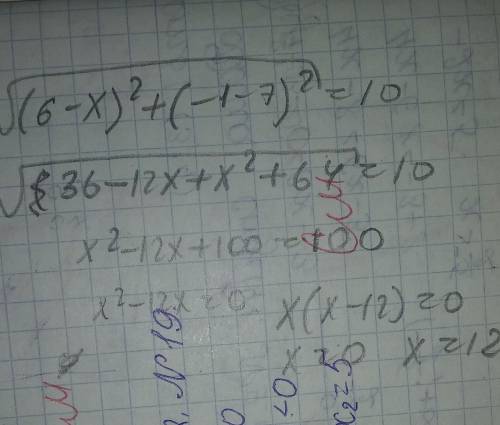 √((6-x)²+(-1-7)²) = 10
√(36-12x+x²+64) = 10
x²-12x+100 = 100
x²-12x=0 x(x-12)=0
x=0 x=12
N 19
x₂=5